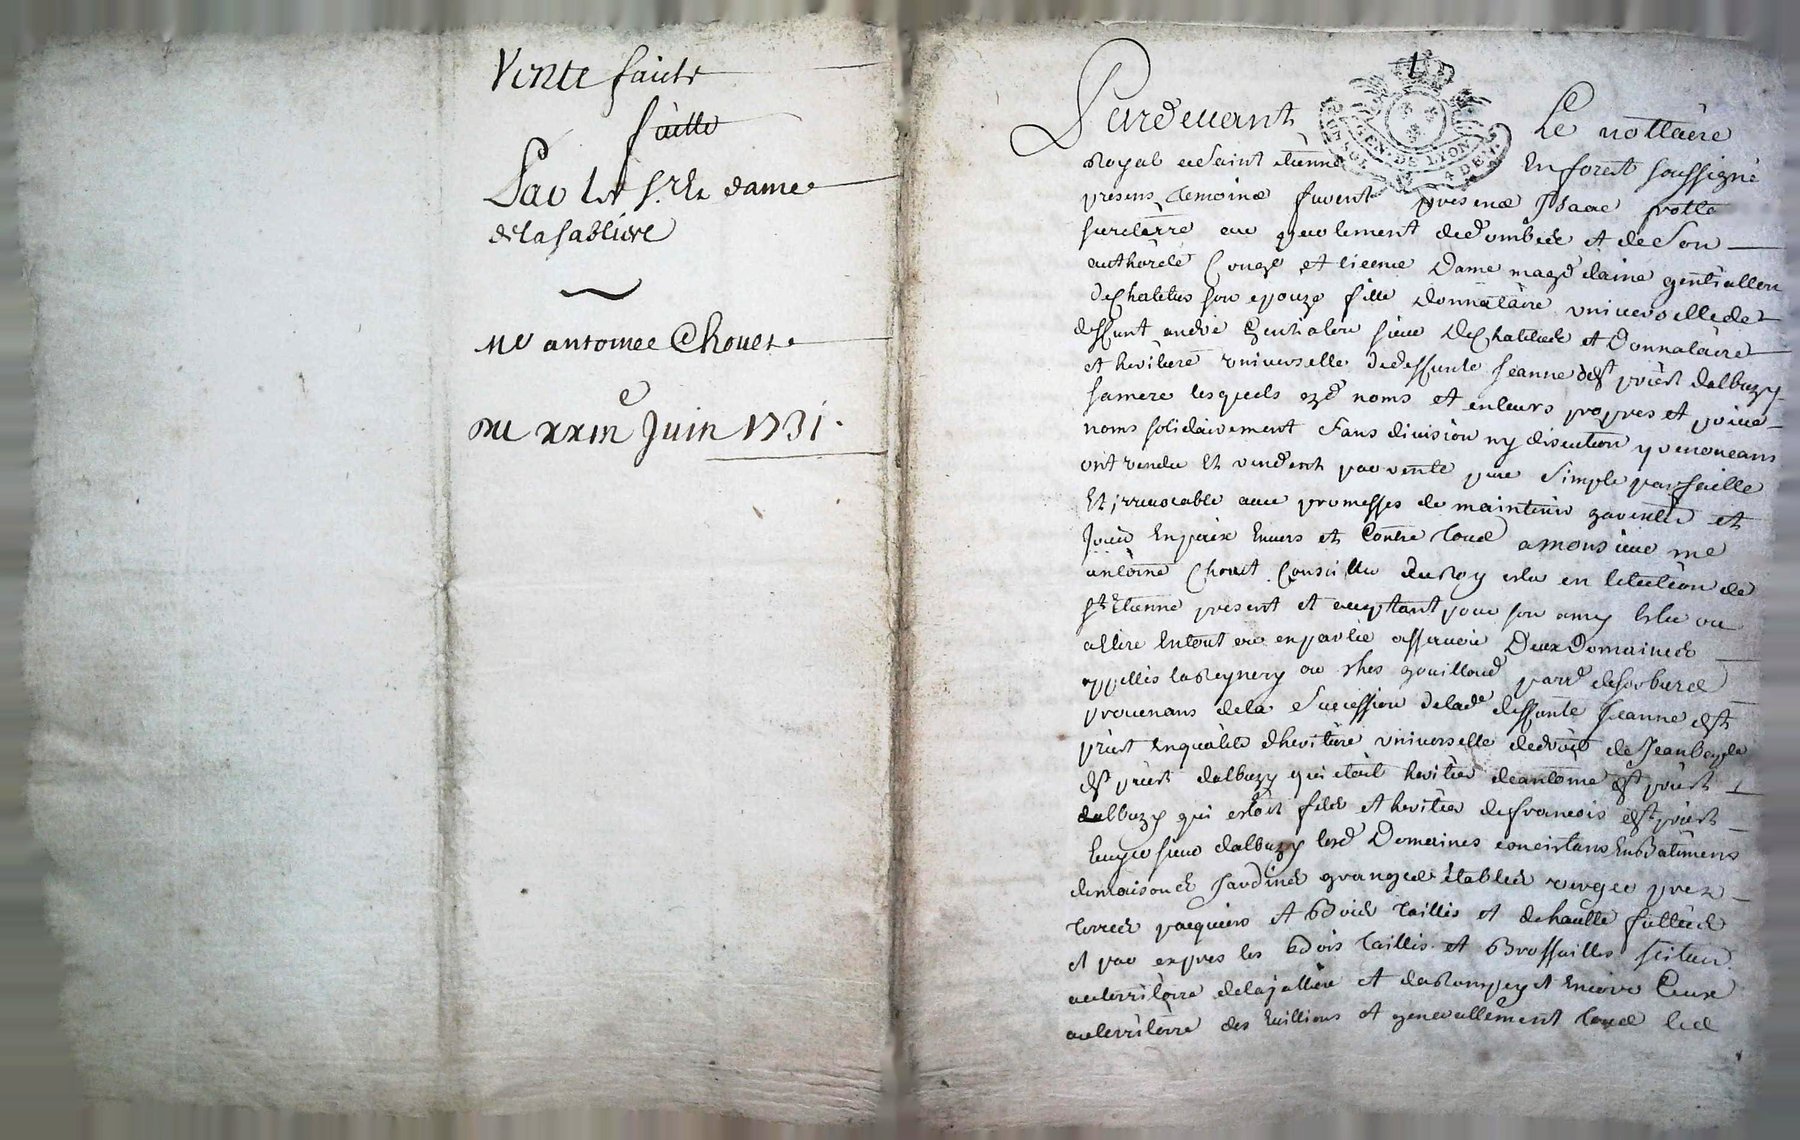 Vente faicte
faitte
Par les Sr. Et dame
de la Sabliere
Me antoinee Chovet
Du xxiii e Juin 1731.
Pardevant Le nottaire
GEN. DE LION
Royal de Saint etienne En forest soussigné
presens temoins furent presens Isaac frotte
authorité Dame magdelaine gentiallon
Deschaletes son epouze fille Donnataire universelle de
deffunt andré Gentialon sieur Deschalletes et Donnataire
et heritiere universelle de deffunte Jeanne dest prier dalbuzy
sa mere lesquels ezd noms et en leurs propres et privés
noms solidairement sans division ny discution y renoncans
ont vendu Et vendent par vente pure Simple parfaitte
Et irrevocable avec promesses de maintenir garentir et
Jouir En paix Envers et Contre tous a monsieur me
antoine Chovet Conseiller du Roy eslu en lelection de
St Etienne present et acceptant pour son amy Eslu ou
a Elire En tout ou en partie assavoir Deux Domaines
appellés la Reynery ou ches gouilloud parr de sorbiers
provenans de la Succession de lade deffunte Jeanne dest
priest En qualité dheritiere universelle de droit de Jean
dest priest dalbuzy qui etoit heritier dantoine dest priest
dalbuzy qui estoit fils et heritier de francois dest priest
sieur dalbuzy lesd Domaines concistans En Batimens
de maisons Jardins granges Etables verger prez
terres paquiers et Bois taillis et de haulte futtees
et par expres les Bois taillis et Brossailles scituez
au territoire de la jalliere et de la Rompey et Encore Ceux
au territoire des et generallement tous les